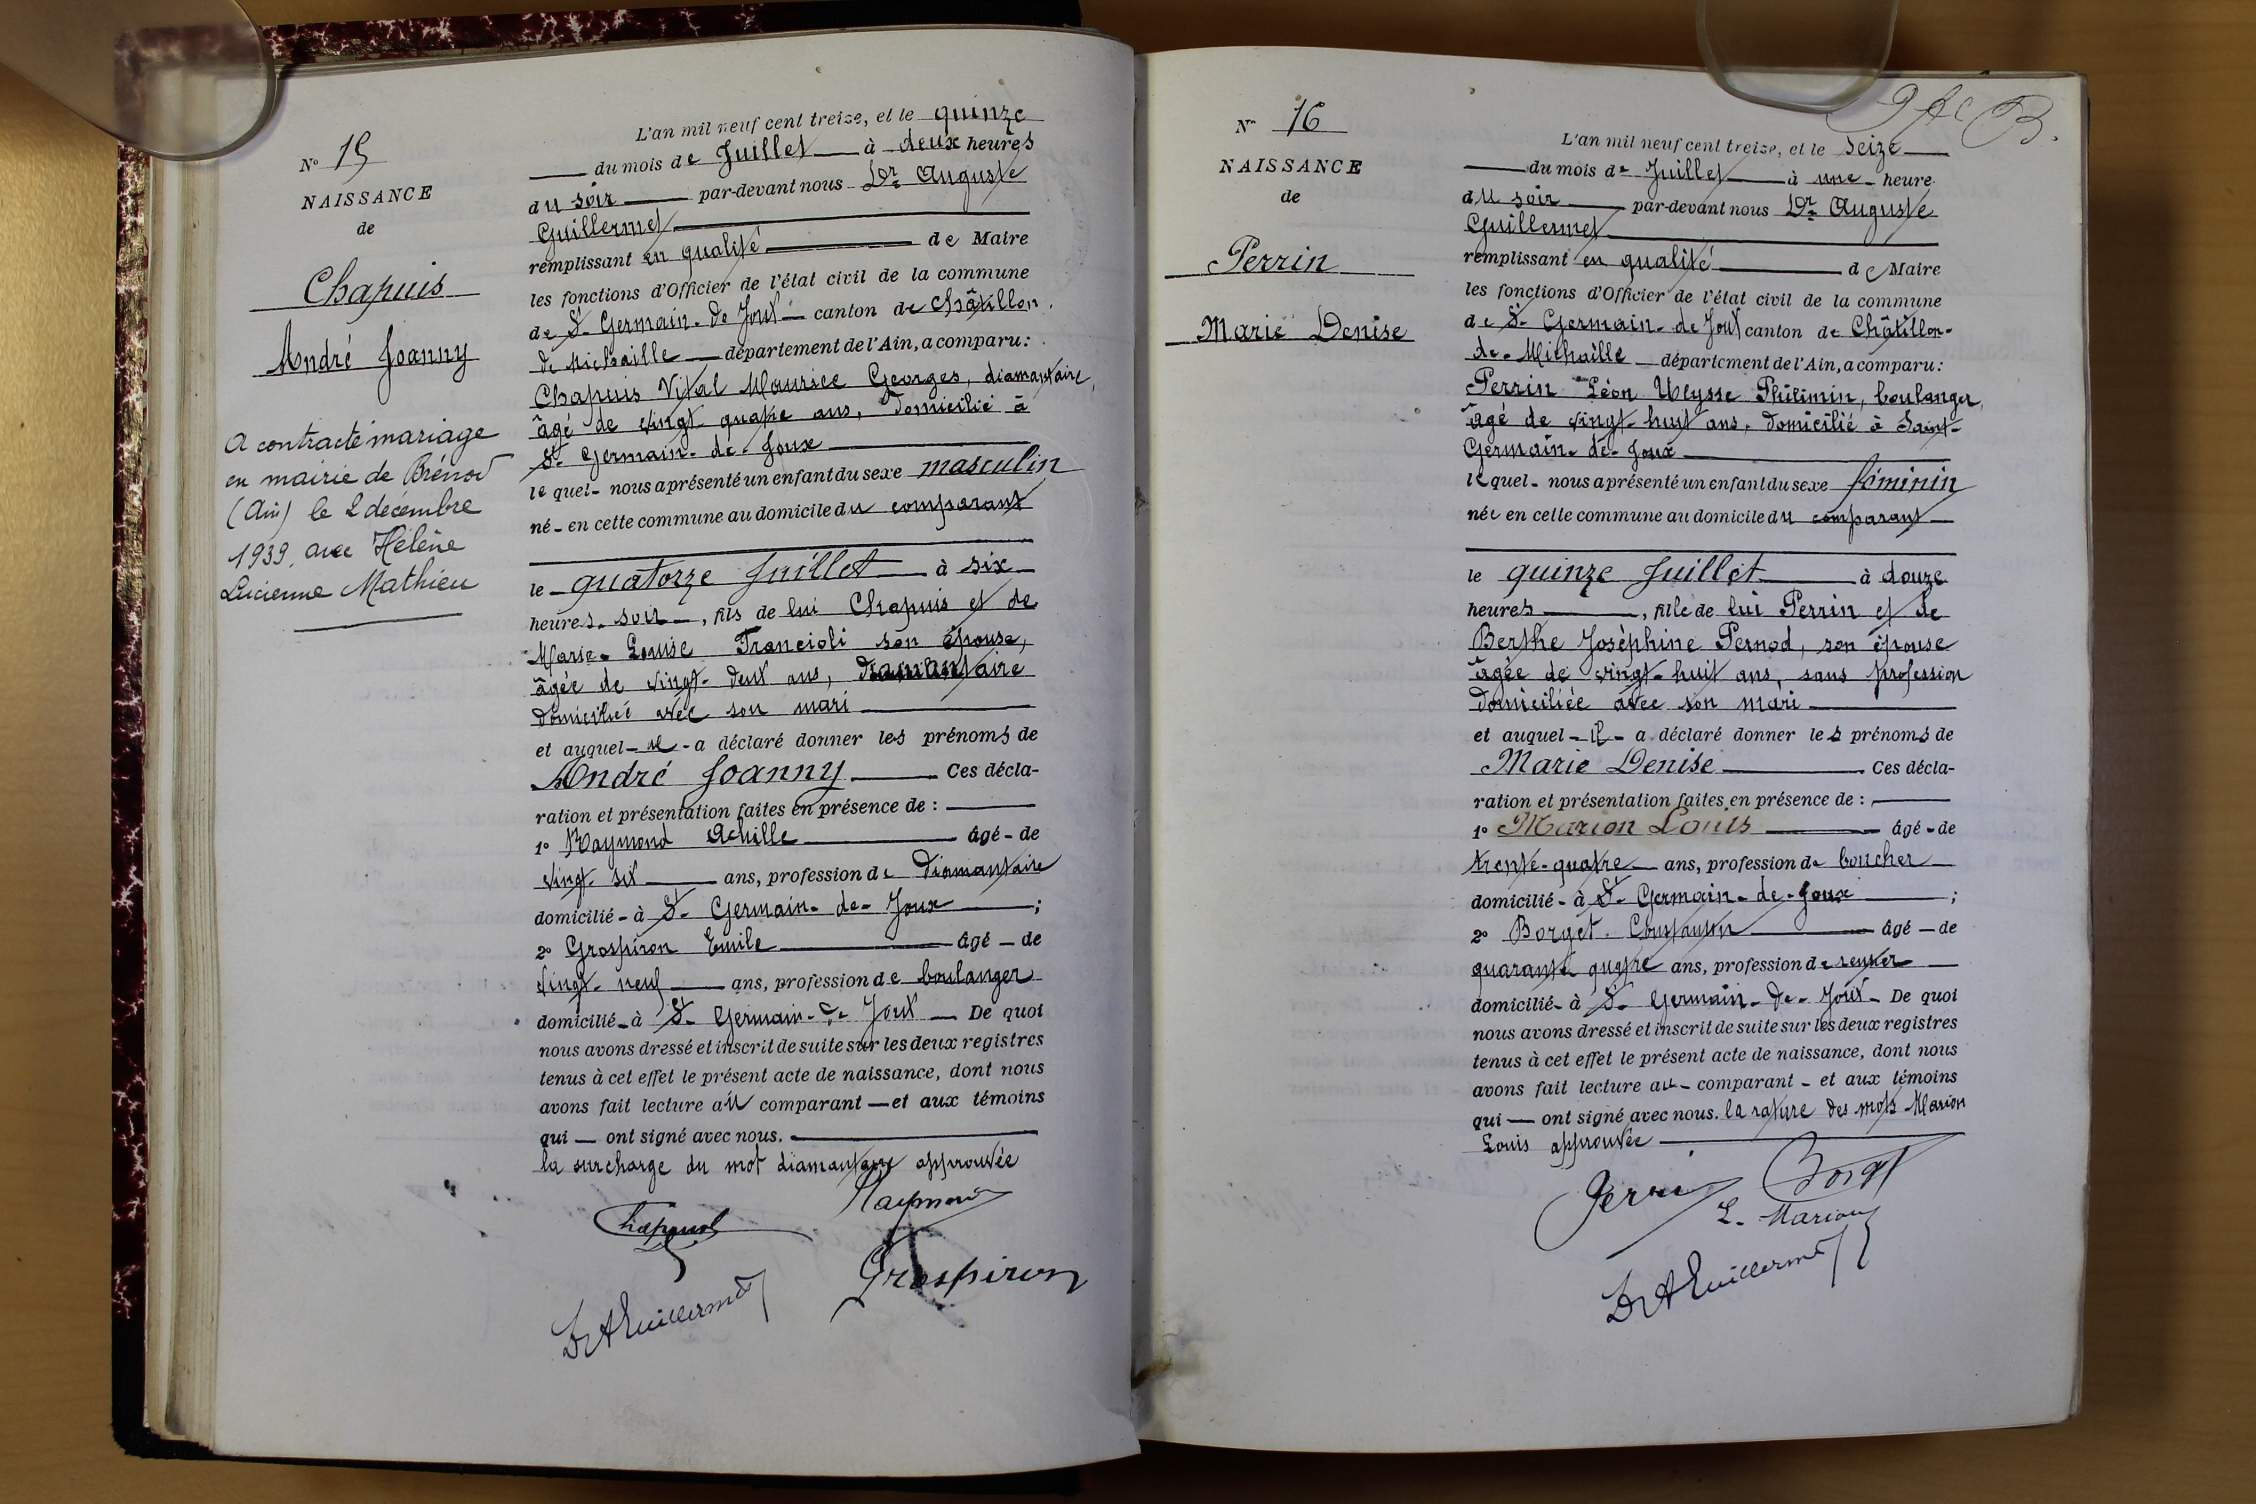 N° 15
NAISSANCE
de
Chapuis
André Joanny
A contracté mariage
en mairie de Brénod
(Ain) le 2 décembre
1939, avec Hélène
Lucienne Mathieu
L'an mil neuf cent treize, et le quinze
du mois de Juillet à deux heures
du soir par-devant nous Dr Auguste
Guillermet
remplissant en qualité de Maire
les fonctions d'Officier de l'état civil de la commune
de St Germain-de-Joux canton de Châtillon
de Michaille département de l'Ain, a comparu:
Chapuis Vital Maurice Georges, diamantaire,
âgé de vingt quatre ans, domicilié à
St Germain-de-Joux
lequel nous a présenté un enfant du sexe masculin
né en cette commune au domicile du comparant
le quatorze Juillet à six
heures soir, fils de lui Chapuis et de
Marie-Louise Francioli son épouse,
âgée de vingt-deux ans, diamantaire
domiciliée avec son mari
et auquel il a déclaré donner les prénoms de
André Joanny Ces décla-
ration et présentation faites en présence de :
1° Raymond Achille âgé de
vingt-six ans, profession de diamantaire
domicilié à St Germain-de-Joux ;
2° Grospiron Emile âgé de
vingt-neuf ans, profession de boulanger
domicilié à St Germain-de Joux De quoi
nous avons dressé et inscrit de suite sur les deux registres
tenus à cet effet le présent acte de naissance, dont nous
avons fait lecture au comparant et aux témoins
qui ont signé avec nous.
la surcharge du mot diamantaire approuvée
Chapuis
Raymond
Grospiron
Dr A Guillermet
N° 16
NAISSANCE
de
Perrin
Marie Denise
L'an mil neuf cent treize, et le seize
du mois de Juillet à une heure
du soir par-devant nous Dr Auguste
Guillermet
remplissant en qualité de Maire
les fonctions d'Officier de l'état civil de la commune
de St Germain-de Joux canton de Châtillon-
de-Michaille département de l'Ain, a comparu:
Perrin Léon Ulysse Philimin, boulanger,
âgé de vingt-huit ans, domicilié à Saint-
Germain-de-Joux
lequel nous a présenté un enfant du sexe féminin
née en cette commune au domicile du comparant
le quinze Juillet à douze
heures, fille de lui Perrin et de
Berthe Joséphine Pernod, son épouse
âgée de vingt-huit ans, sans profession
domiciliée avec son mari
et auquel il a déclaré donner les prénoms de
Marie Denise Ces décla-
ration et présentation faites en présence de :
1° Marion Louis âgé de
trente-quatre ans, profession de boucher
domicilié à St Germain-de-Joux ;
2° Borget Constantin âgé de
quarante quatre ans, profession de rentier
domicilié à St Germain-de-Joux De quoi
nous avons dressé et inscrit de suite sur les deux registres
tenus à cet effet le présent acte de naissance, dont nous
avons fait lecture au comparant et aux témoins
qui ont signé avec nous. la rature des mots Marion
Louis approuvée
Perrin
Borget
L. Marion
Dr A Guillermet